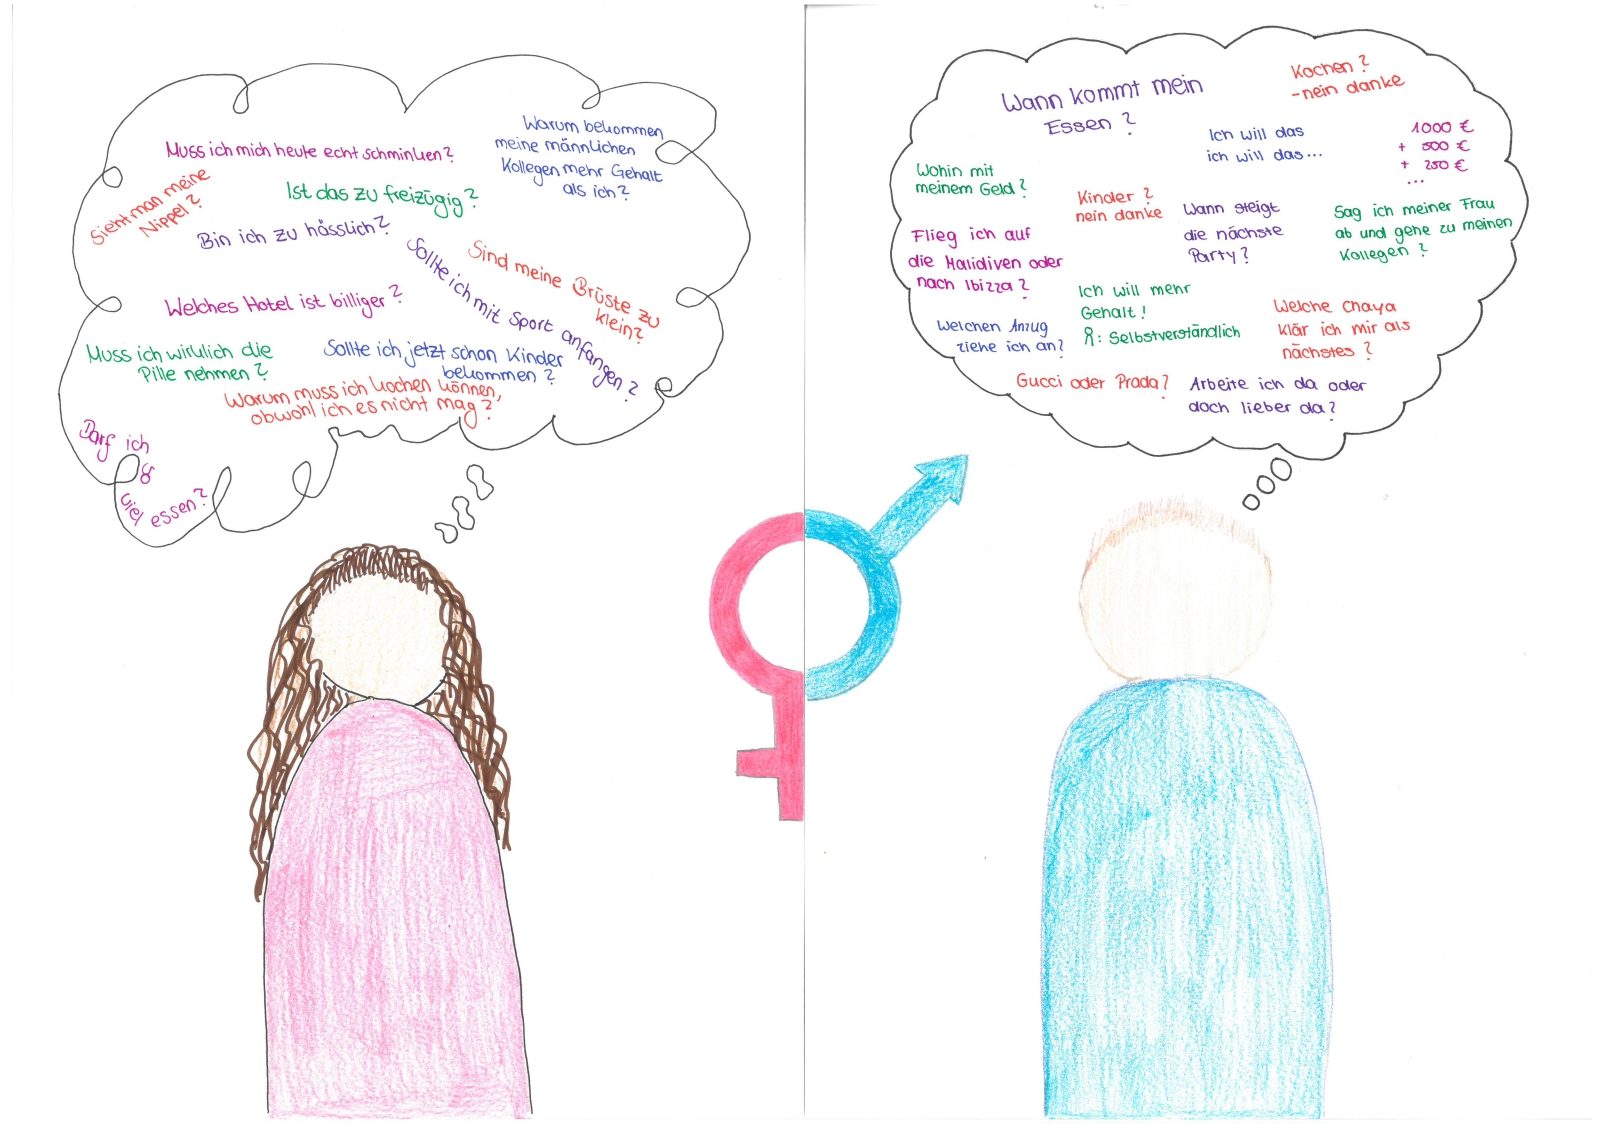 Muss ich mich heute echt schminken?
Warum bekommen
meine männlichen
Kollegen mehr Gehalt
als ich?
Sieht man meine
Nippel?
Ist das zu freizügig?
Bin ich zu hässlich?
Sollte ich mit Sport anfangen?
Sind meine Brüste zu
klein?
Welches Hotel ist billiger?
Muss ich wirklich die
Pille nehmen?
Sollte ich jetzt schon Kinder
bekommen?
Warum muss ich kochen können,
obwohl ich es nicht mag?
Darf ich
so
viel essen?
Wann kommt mein
Essen?
Kochen?
- nein danke
Ich will das
ich will das...
1000 €
+ 500 €
+ 250 €
...
Wohin mit
meinem Geld?
Kinder?
nein danke
Wann steigt
die nächste
Party?
Sag ich meiner Frau
ab und gehe zu meinen
Kollegen?
Flieg ich auf
die Malidiven oder
nach Ibizza?
Ich will mehr
Gehalt!
: Selbstverständlich
Welchen Anzug
ziehe ich an?
Welche Chaya
klär ich mir als
nächstes?
Gucci oder Prada?
Arbeite ich da oder
doch lieber da?